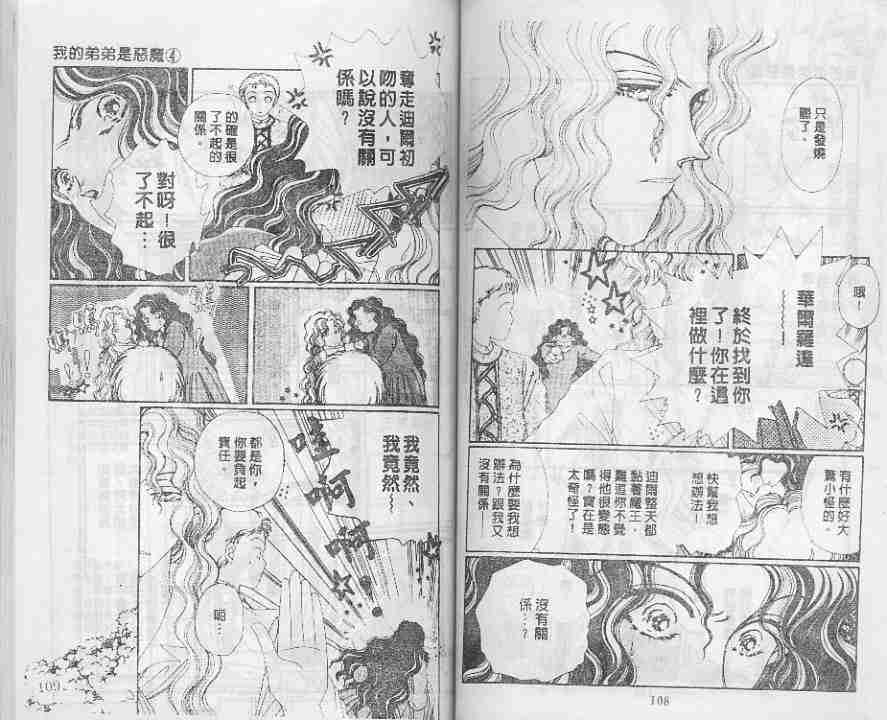 只是發燒
罷了。
哦！
華爾羅達
～～～！
終於找到你
了！你在這
裡做什麼？
有什麼好大
驚小怪的。
快幫我想
想辦法！
迪爾整天都
黏著魔王，
難道你不覺
得他很變態
嗎？實在是
太奇怪了！
為什麼要我想
辦法？跟我又
沒有關係—
沒有關
係…？
108
我的弟弟是惡魔④
奪走迪爾初
吻的人，可
以說沒有關
係嗎？
的確是很
了不起的
關係。
對呀！很
了不起…
我竟然、
我竟然～
哇啊啊
都是你，
你要負起
責任。
呃…
109